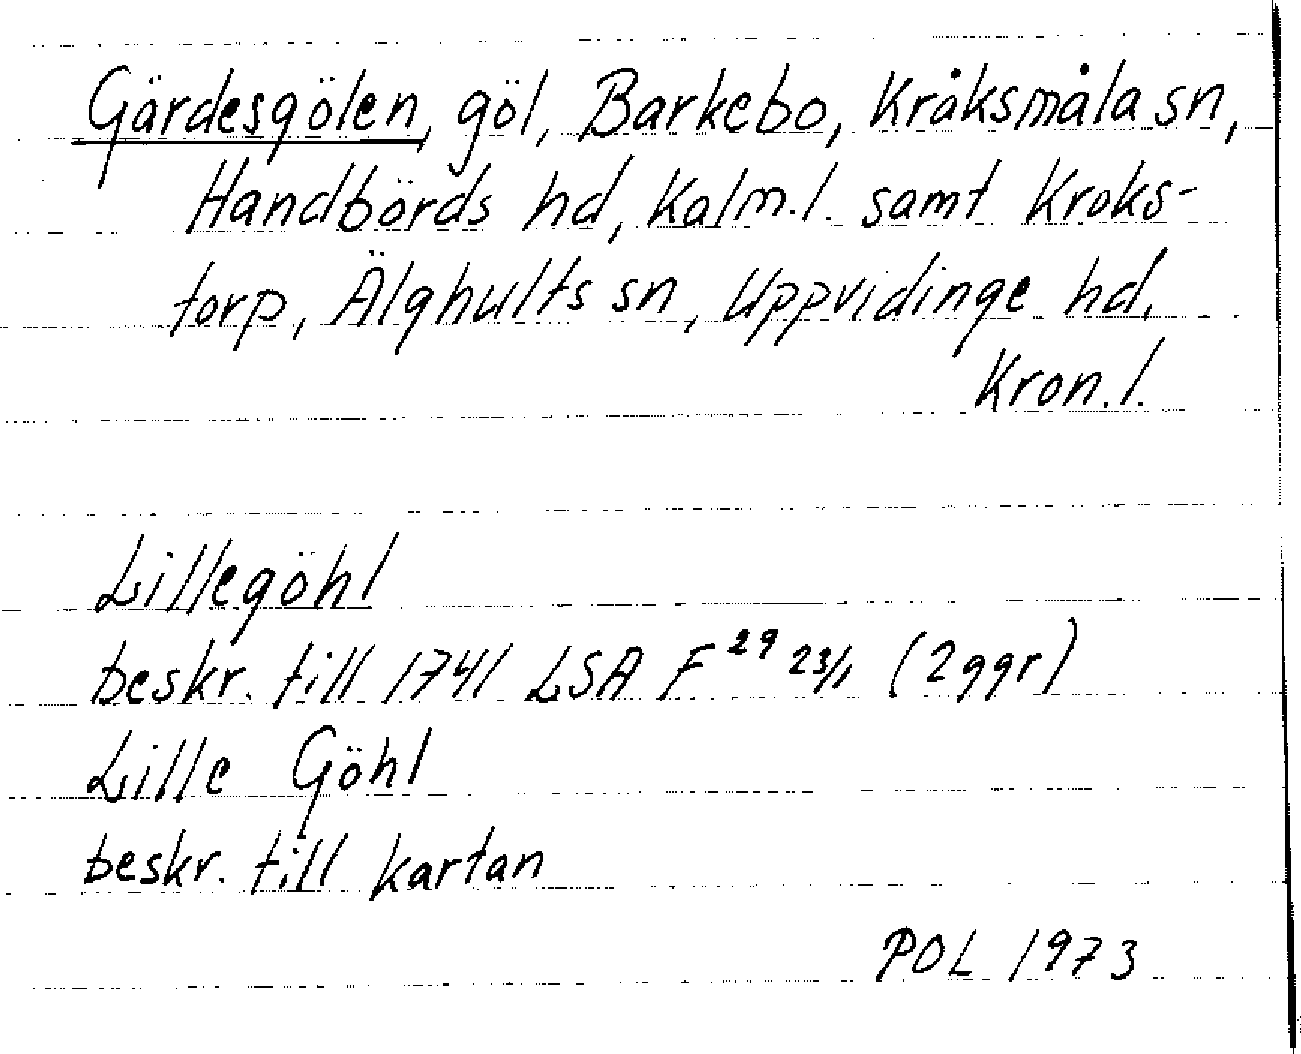 Gärdesgölen, göl, Barkebo, Kråksmåla sn,
Handbörds hd, Kalm.l. samt Kroks-
torp, Älghults sn, Uppvidinge hd,
Kron.l.
Lillegöhl
beskr. till 1741 LSA F 29 23/1 (2ggr)
Lille Göhl
beskr. till kartan
POL 1973